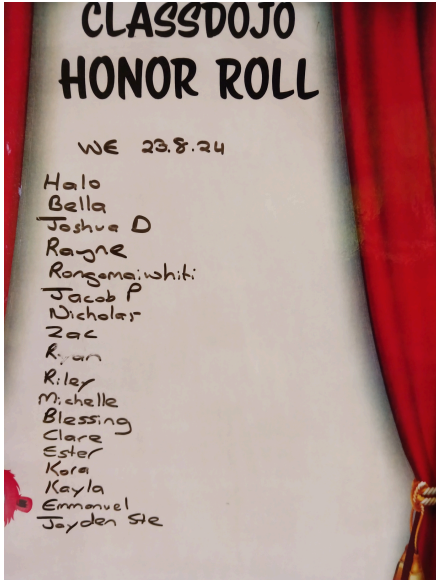 CLASSDOJO
HONOR ROLL
WE 23.8.24
Halo
Bella
Joshua D
Rayne
Rongomaiwhiti
Jacob P
Nicholas
Zac
Riley
Michelle
Blessing
Clare
Ester
Kora
Kayla
Emmanuel
Jayden Ste